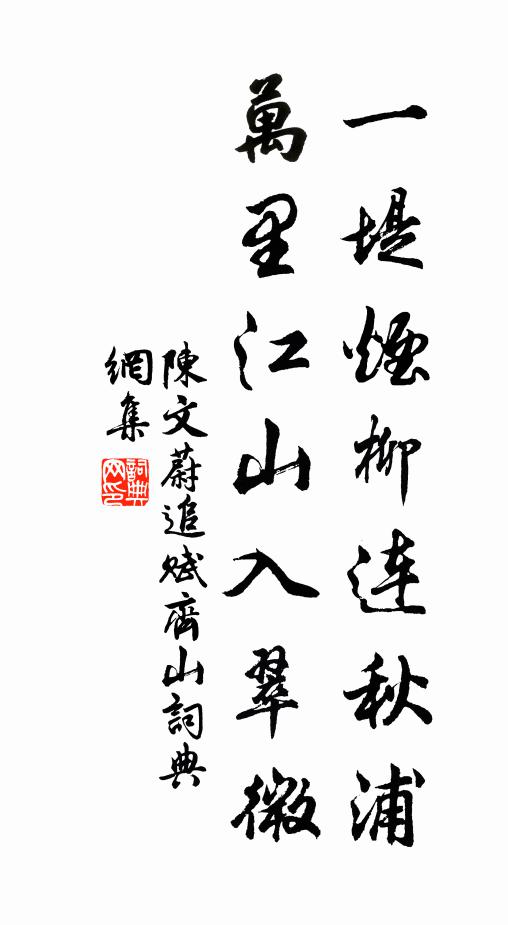 一堤煙柳連秋浦
萬里江山入翠微
陳文蔚追賦齊山詞典
網集
詞典網印